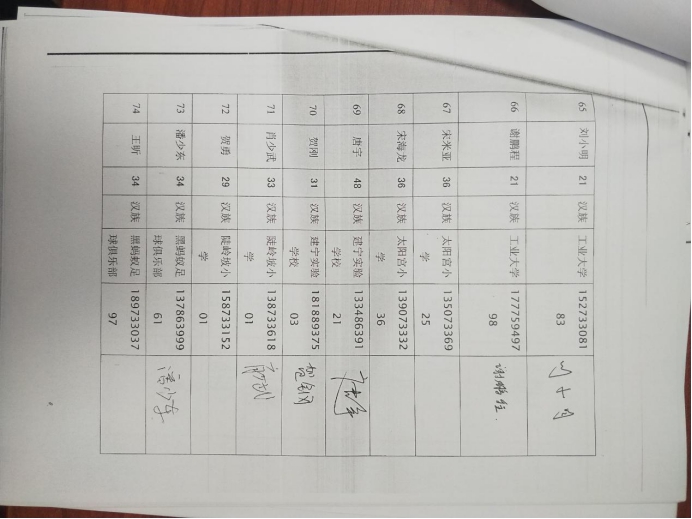 65 刘小明 21 汉族 工业大学 152733081
83 刘小明
66 谢鹏程 21 汉族 工业大学 177759497
98 谢鹏程
67 宋米亚 36 汉族 太阳宫小 135073369
学 25
68 宋海龙 36 汉族 太阳宫小 139073332
学 36
69 唐宇 48 汉族 建宁实验 133486391
学校 21
70 贺刚 31 汉族 建宁实验 181889375
学校 03 贺刚
71 肖少武 33 汉族 陡岭坡小 138733618
学 01
72 贺勇 29 汉族 陡岭坡小 158733152
学 01
73 潘少东 34 汉族 黑蚂蚁足 137863999
球俱乐部 61 潘少东
74 王昕 34 汉族 黑蚂蚁足 189733037
球俱乐部 97